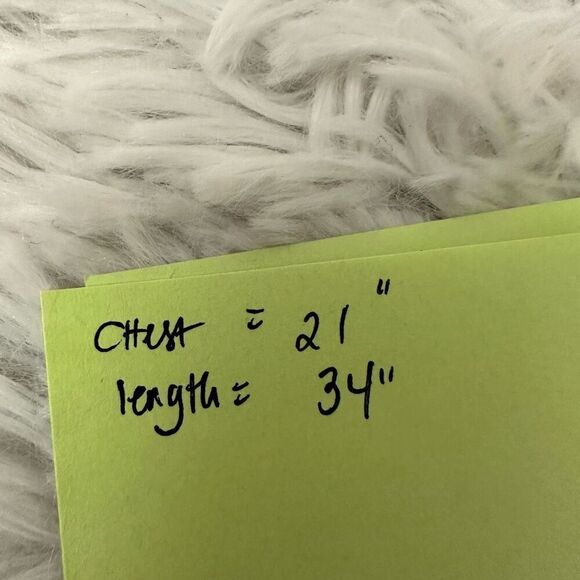 CHest = 21"
length = 34"